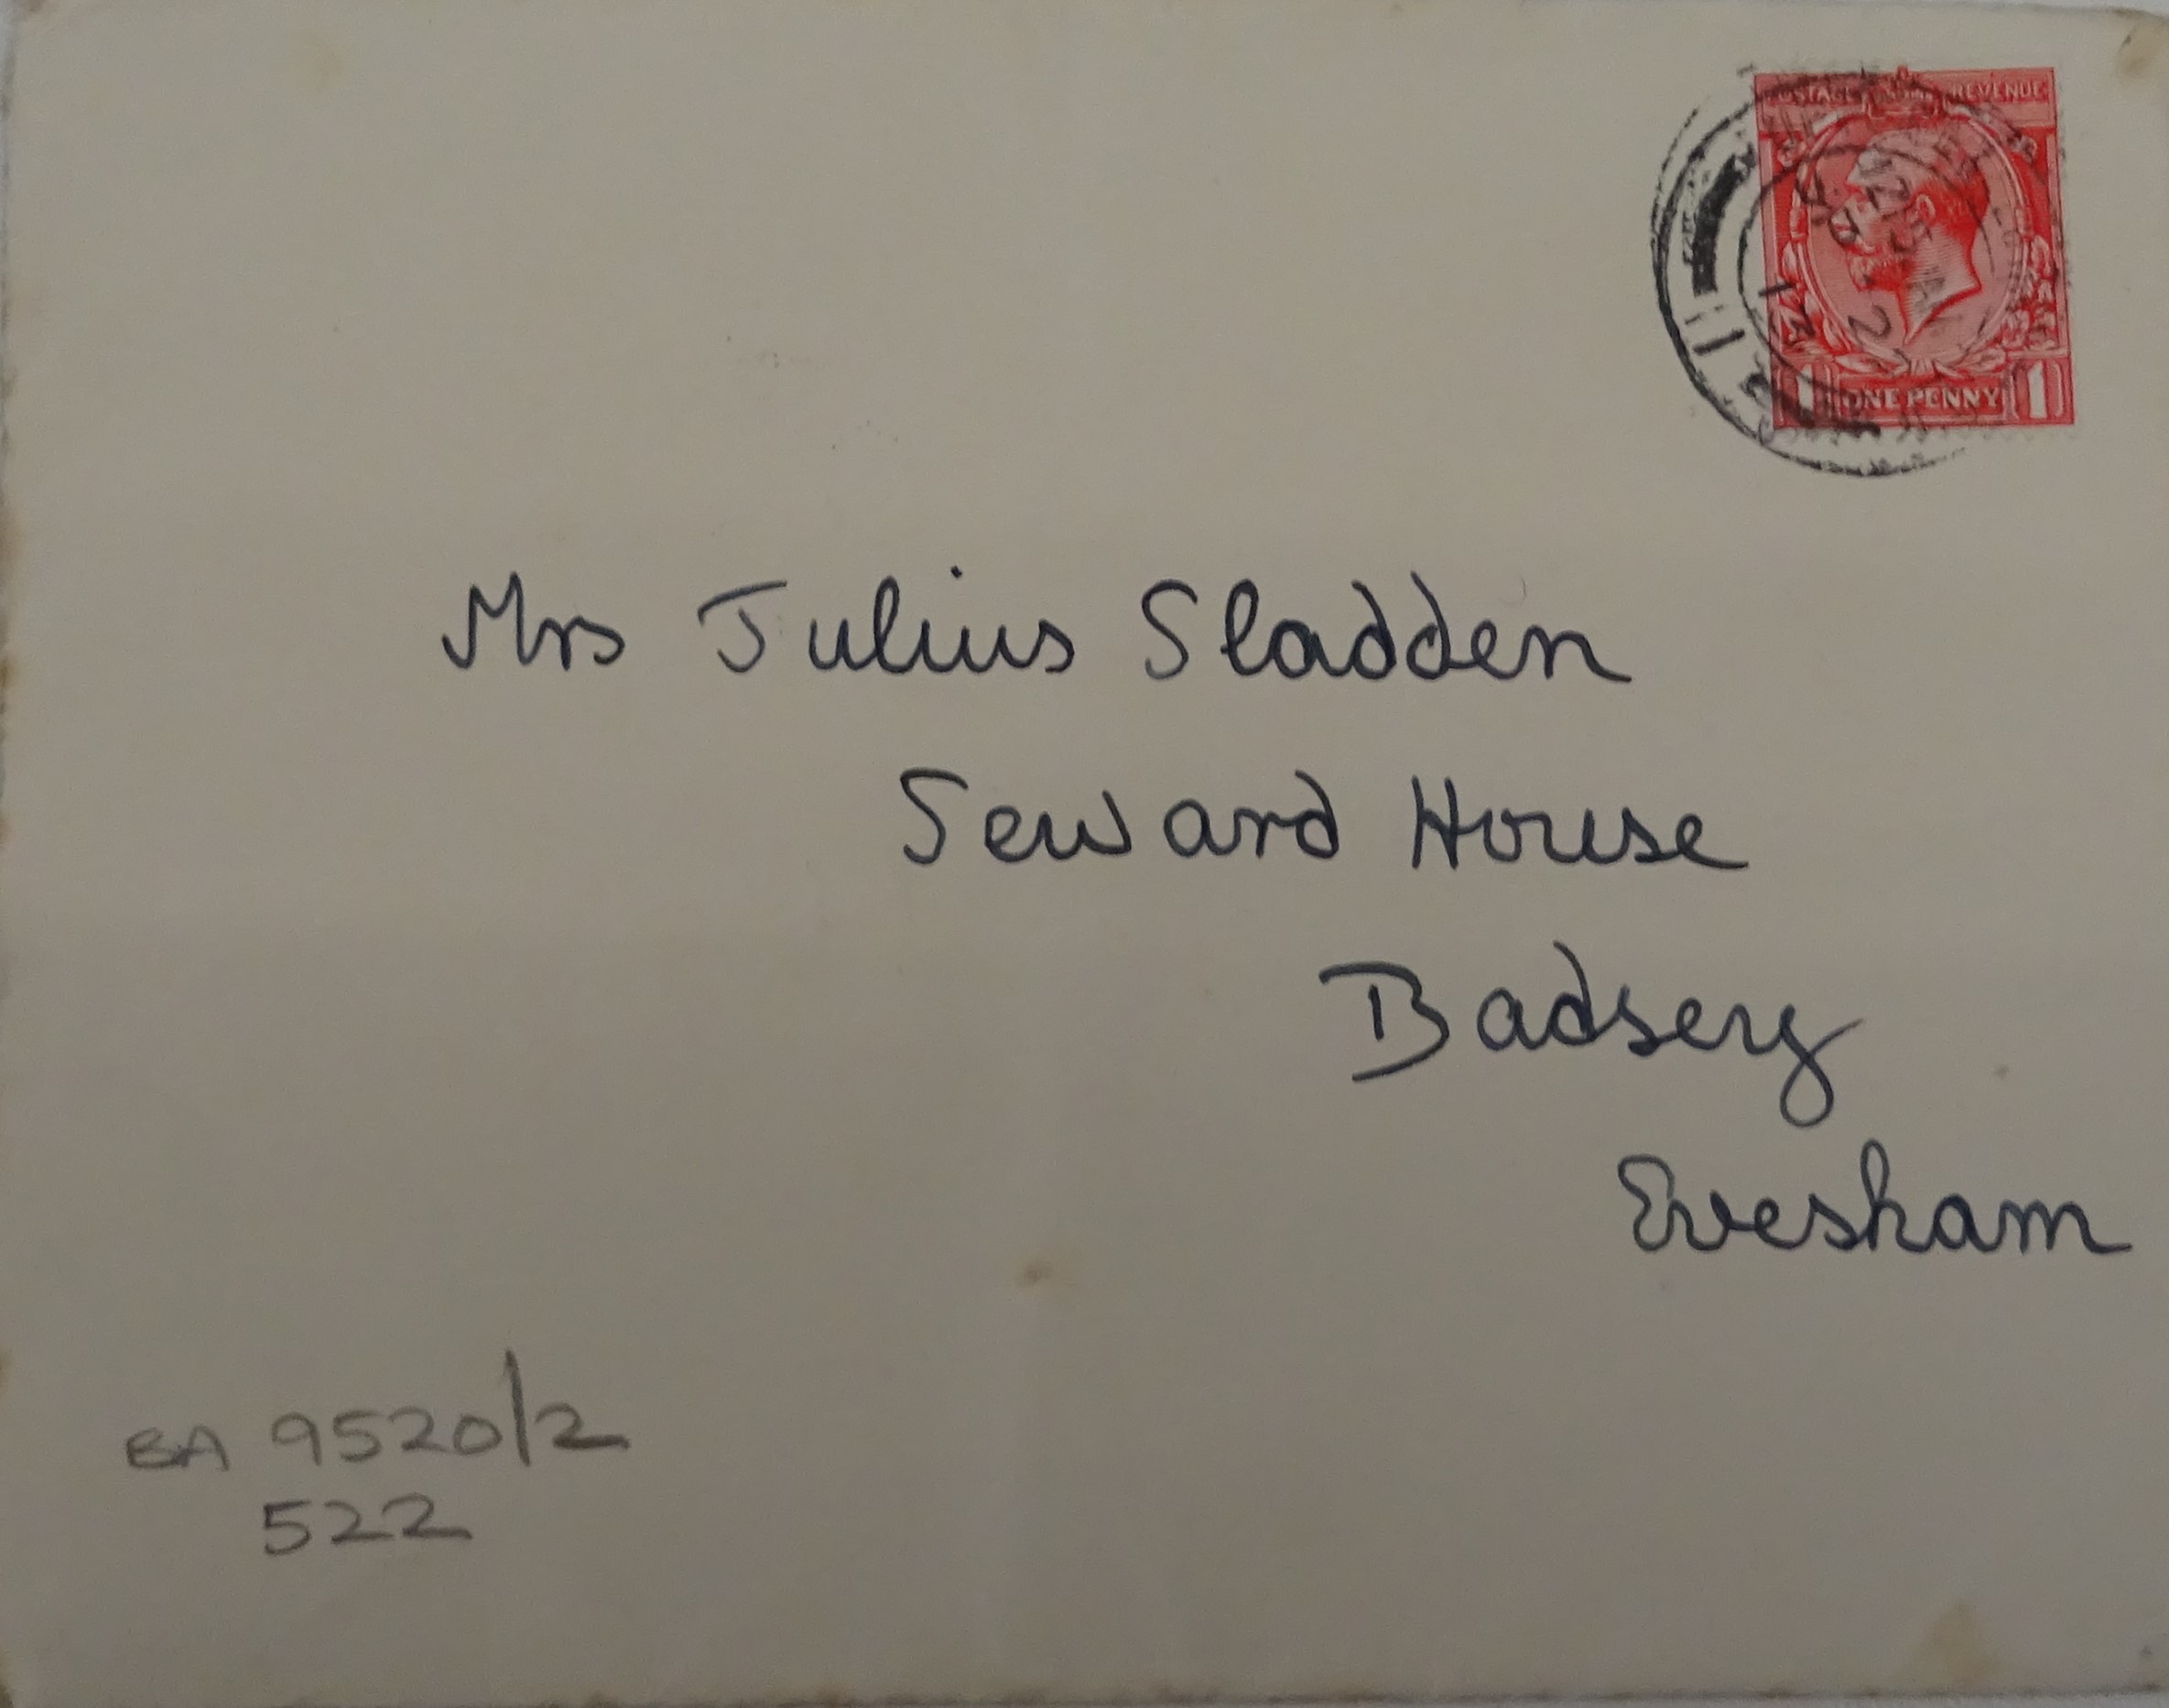 POSTAGE REVENUE
1 ONE PENNY 1
Mrs Julius Sladden
Seward House
Badsey
Evesham
BA 9520/2
522